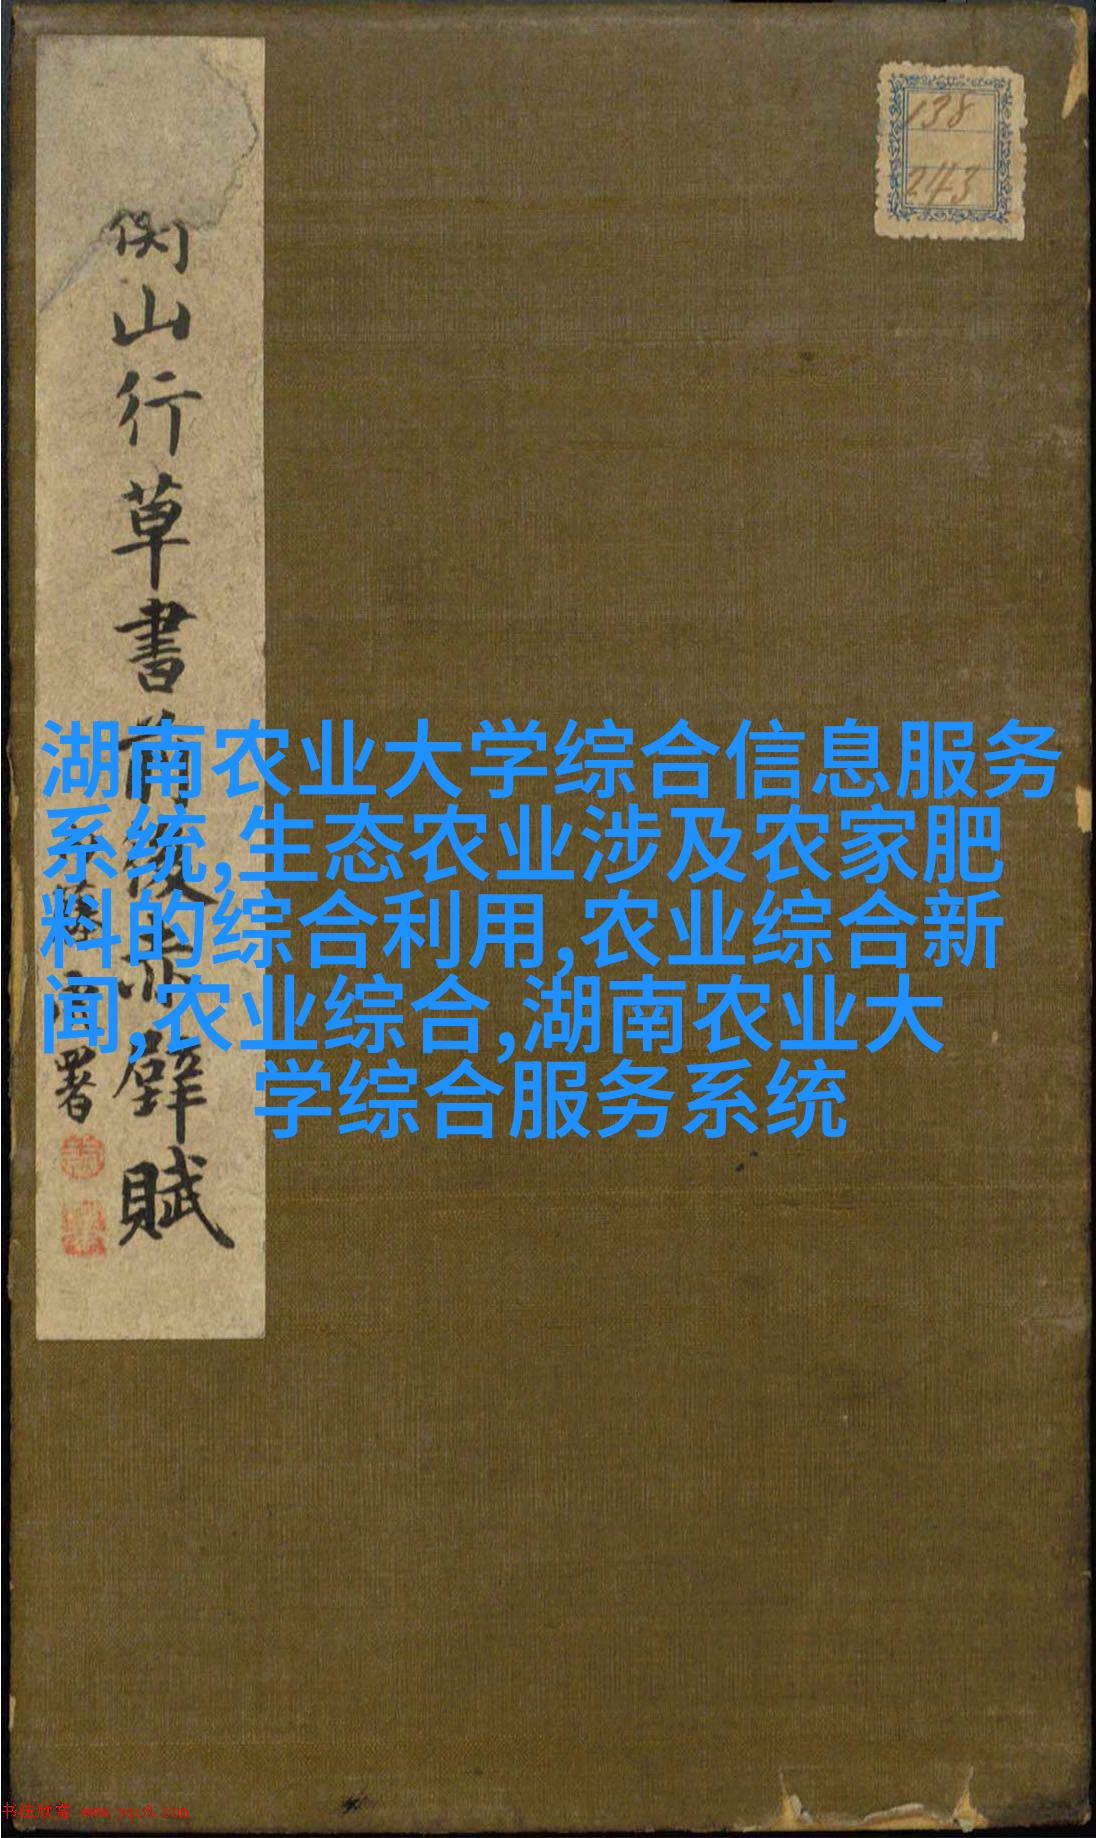 138
243
山行草書前後赤壁賦
署
湖南农业大学综合信息服务
系统,生态农业涉及农家肥
料的综合利用,农业综合新
闻,农业综合,湖南农业大
学综合服务系统
书法欣赏 www.yac8.com